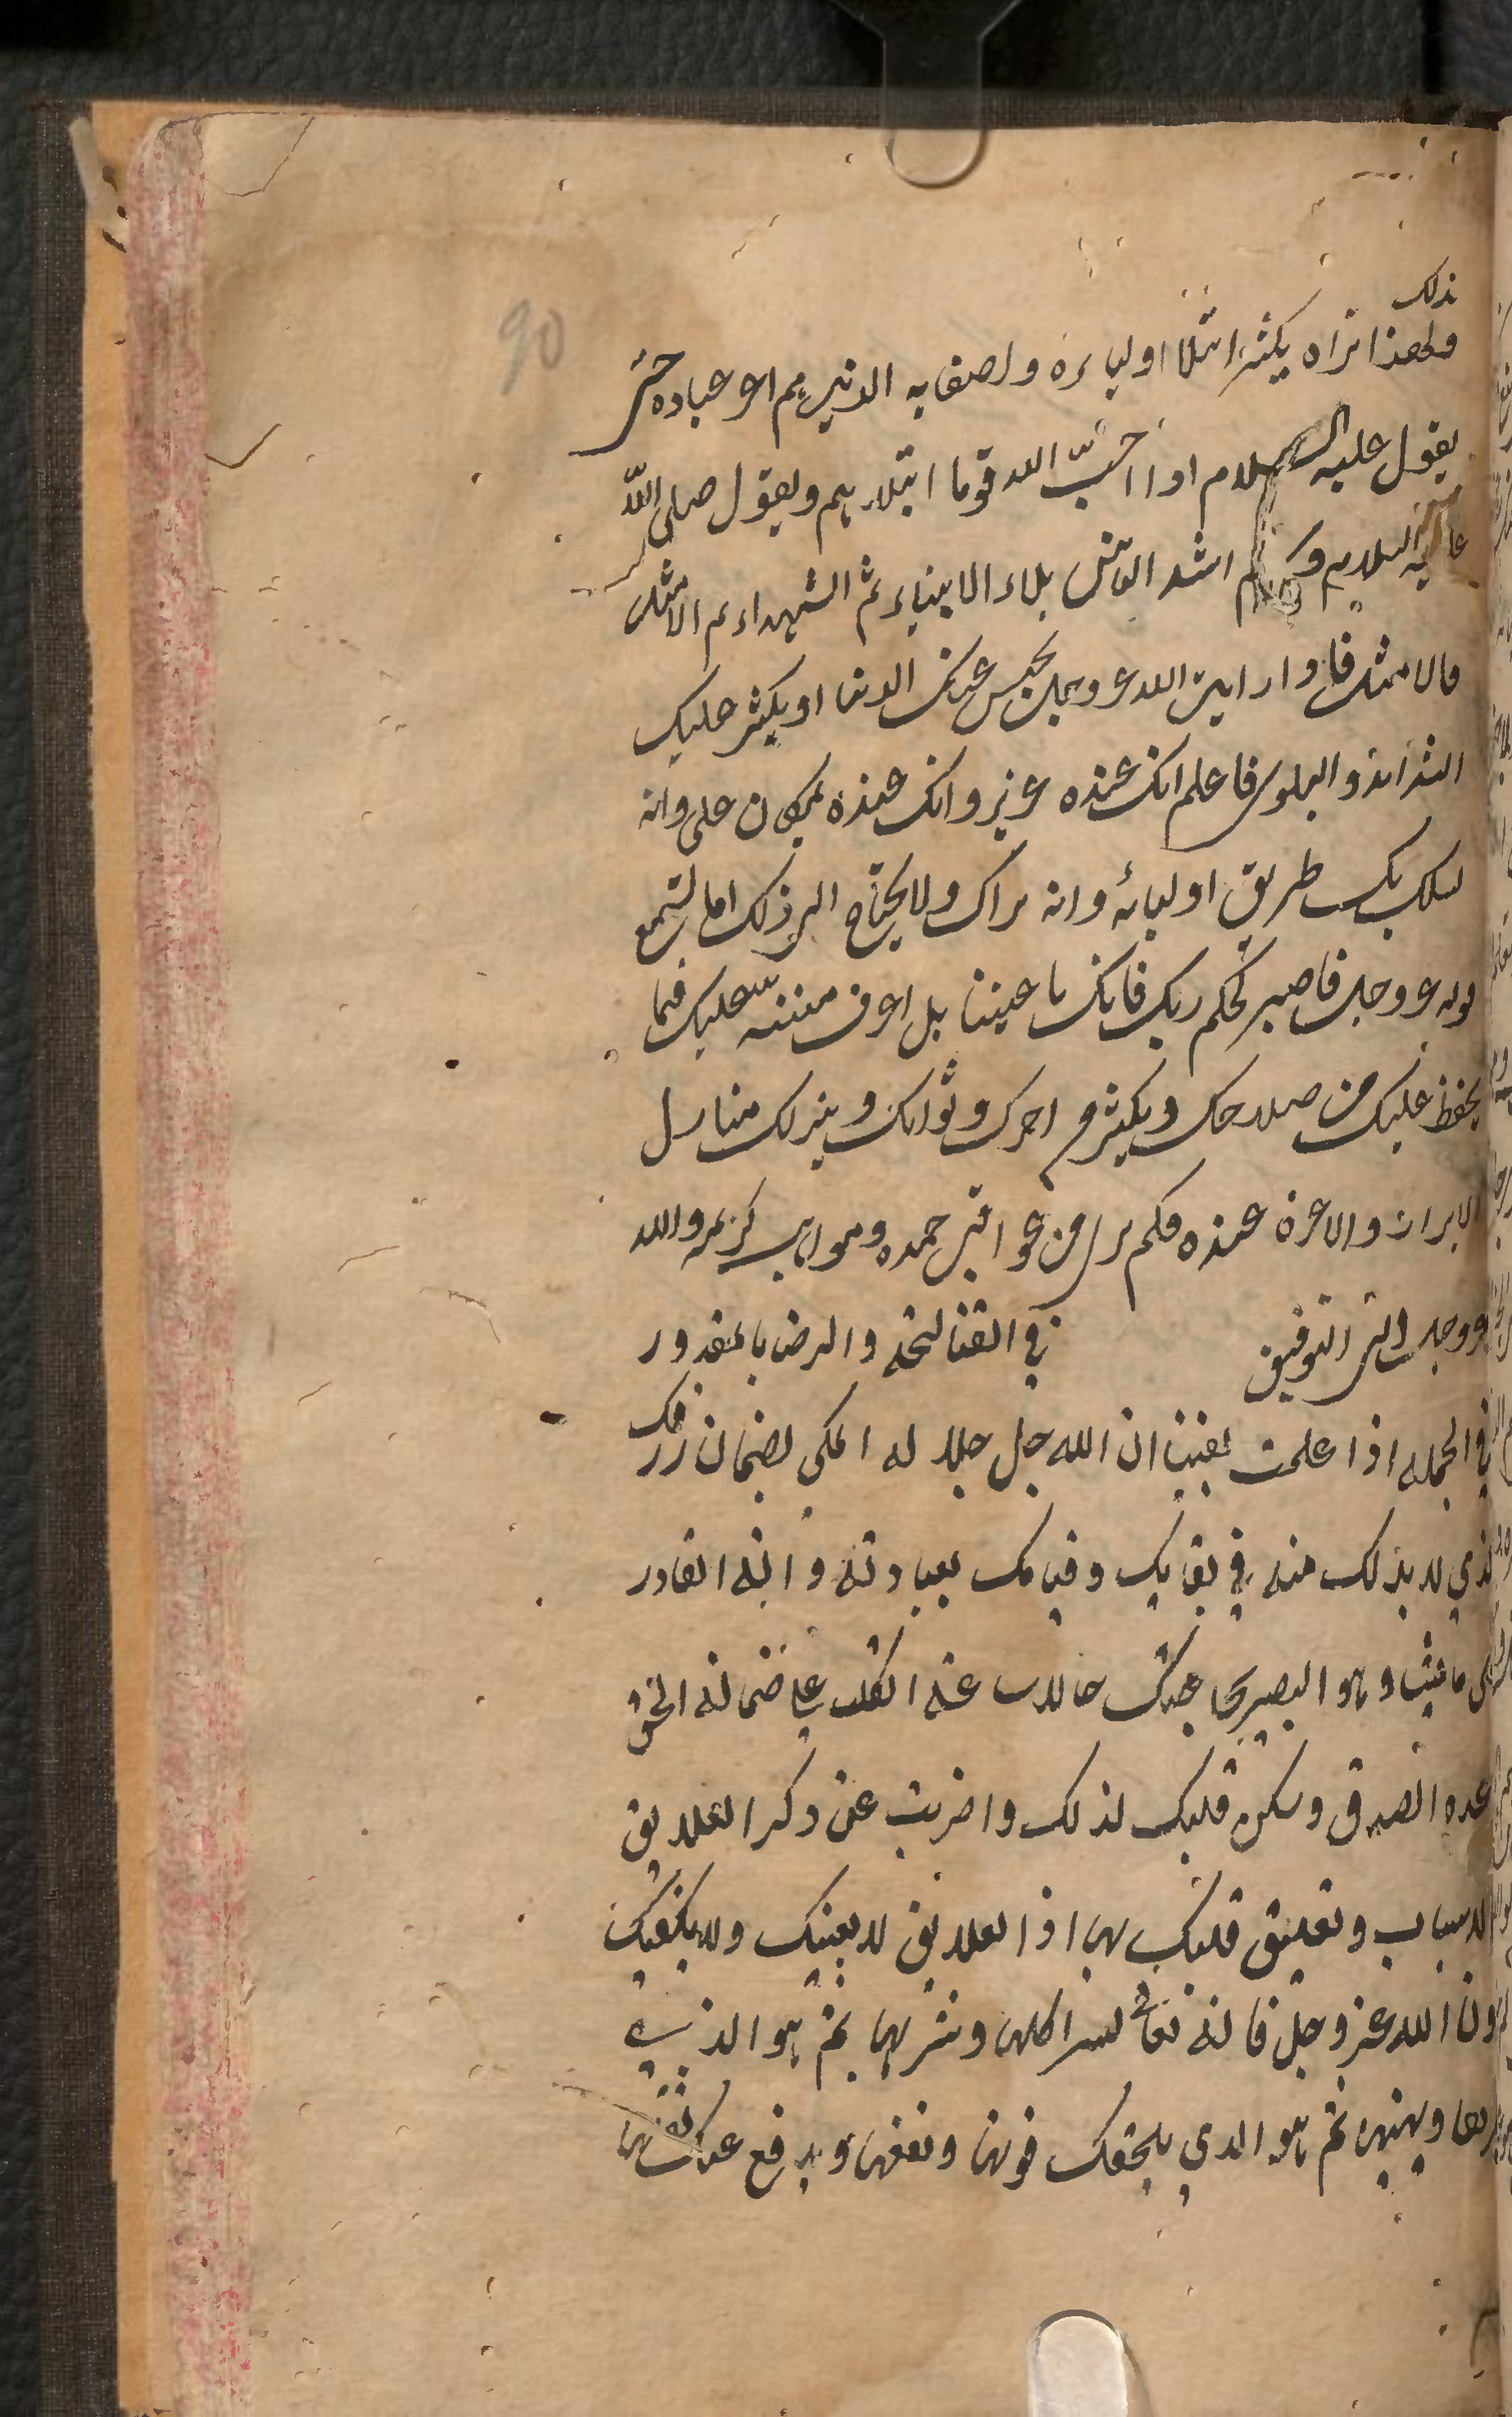 90
ذلك
ولهذا تراه يكثر ابتلا اوليائه واصفيايه الذين هم اعز عباده حتى
يقول عليه السلام اذا احبّ الله قوما ابتلاهم ويقول صلى الله
عليه السلام وسلم اشد الناس بلاء الانبياء ثم الشهداء ثم الامثل
فالامثل فاذا رايت الله عز وجل يحبس عنك الدنيا او يكثر عليك
الشدائد والبلوى فاعلم انك عنده عزيز وانك عنده بمكان على وانه
يسلك بك طريق اوليائه وانه يراك ولا يحتاج الى ذلك اما تسمع
قوله عز وجل فاصبر لحكم ربك فانك باعيننا بل اعرف منته عليك فيما
يحفظ عليك من صلاحك ويكثر من اجرك وثوابك وينزلك منازل
الابرار والاعزة عنده فكم ترى من عواقب حميده ومواهب كريمه والله
عز وجل ولى التوفيق في القناعة والرضا بالمقدور
في الجمله اذا علمت يقينا ان الله جل جلاله الملى بضمان رزقك
الذي لا بد لك منه في بقايك وقيامك بعبادته وانه القادر
على ما يشا وهو البصير بحاجتك حالات عند اتكلت على ضمانه الحق
وعده الصدق وسكن قلبك لذلك واضربت عن ذكر العلايق
الاسباب وتعليق قلبك بها اذا العلايق لا يغنيك ولا يكفيك
دون الله عز وجل فانه تعالى يسر اكلها وشربها ثم هو الذي
يمريها ويهنيها ثم هو الذي يلحقك قوتها ونفعها ويدفع عنك ثقلها